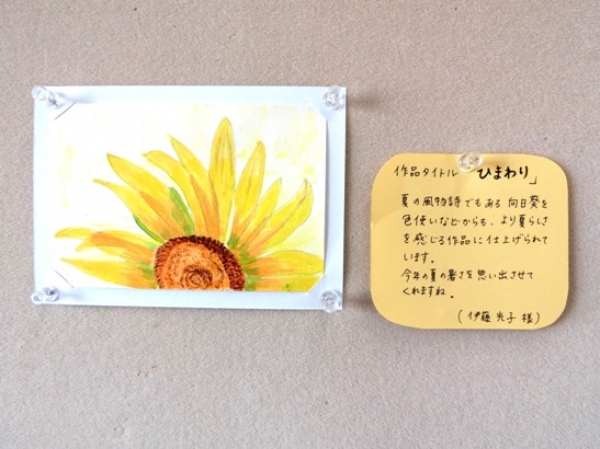 作品タイトル 「ひまわり」
夏の風物詩でもある向日葵を
色使いなどからも、より夏らしさ
を感じる作品に仕上げられて
います。
今年の夏の暑さを思い出させて
くれますね。
(伊藤光子様)